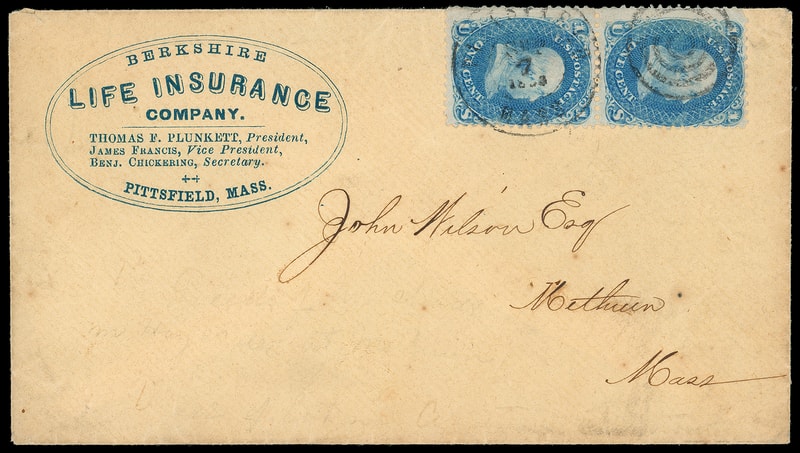 BERKSHIRE
LIFE INSURANCE
COMPANY.
THOMAS F. PLUNKETT, President,
JAMES FRANCIS, Vice President,
BENJ. CHICKERING, Secretary.
PITTSFIELD, MASS.
U.S. POSTAGE
ONE CENT
7
MASS
U.S. POSTAGE
ONE CENT
John Wilson Esq
Methuen
Mass